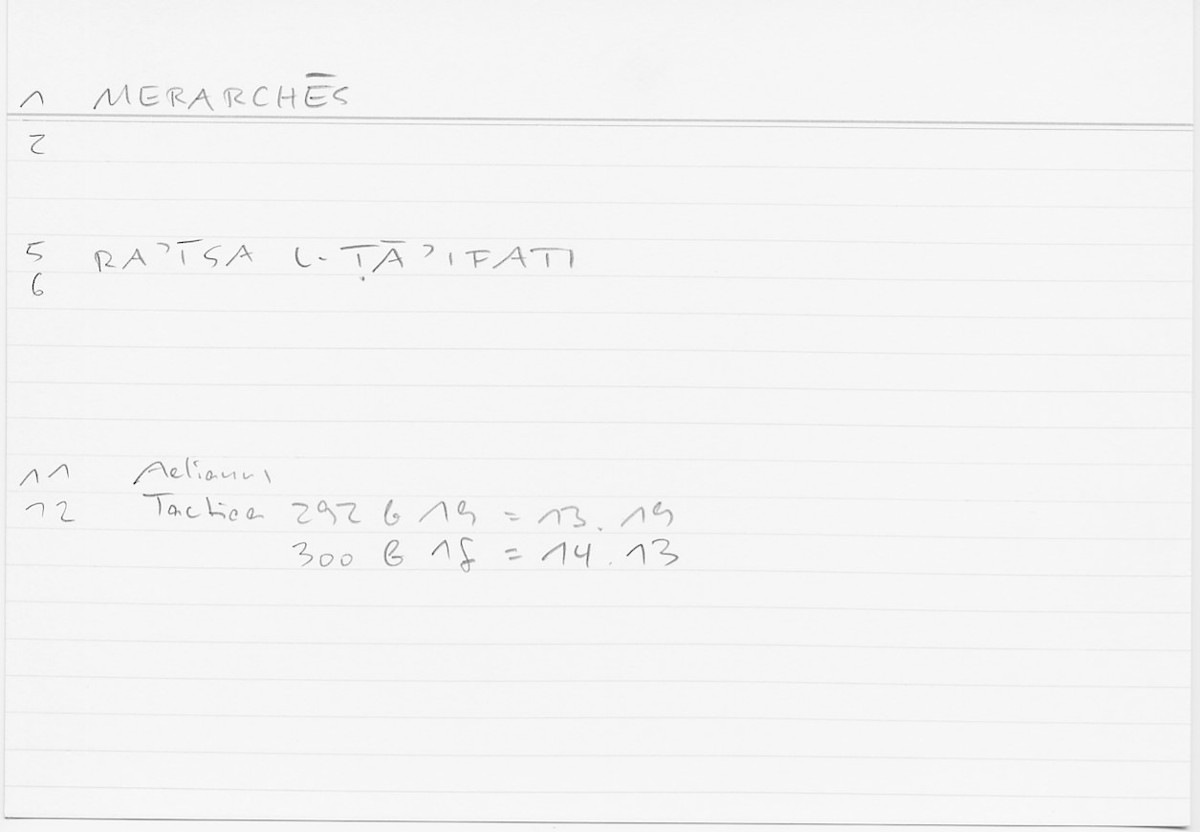 1 MERARCHĒS
2
5 RAʾĪSA L-ṬĀʾIFATI
6
11 Aelianus
12 Tactica 292 G 19 = 13.19
300 G 18 = 14.13